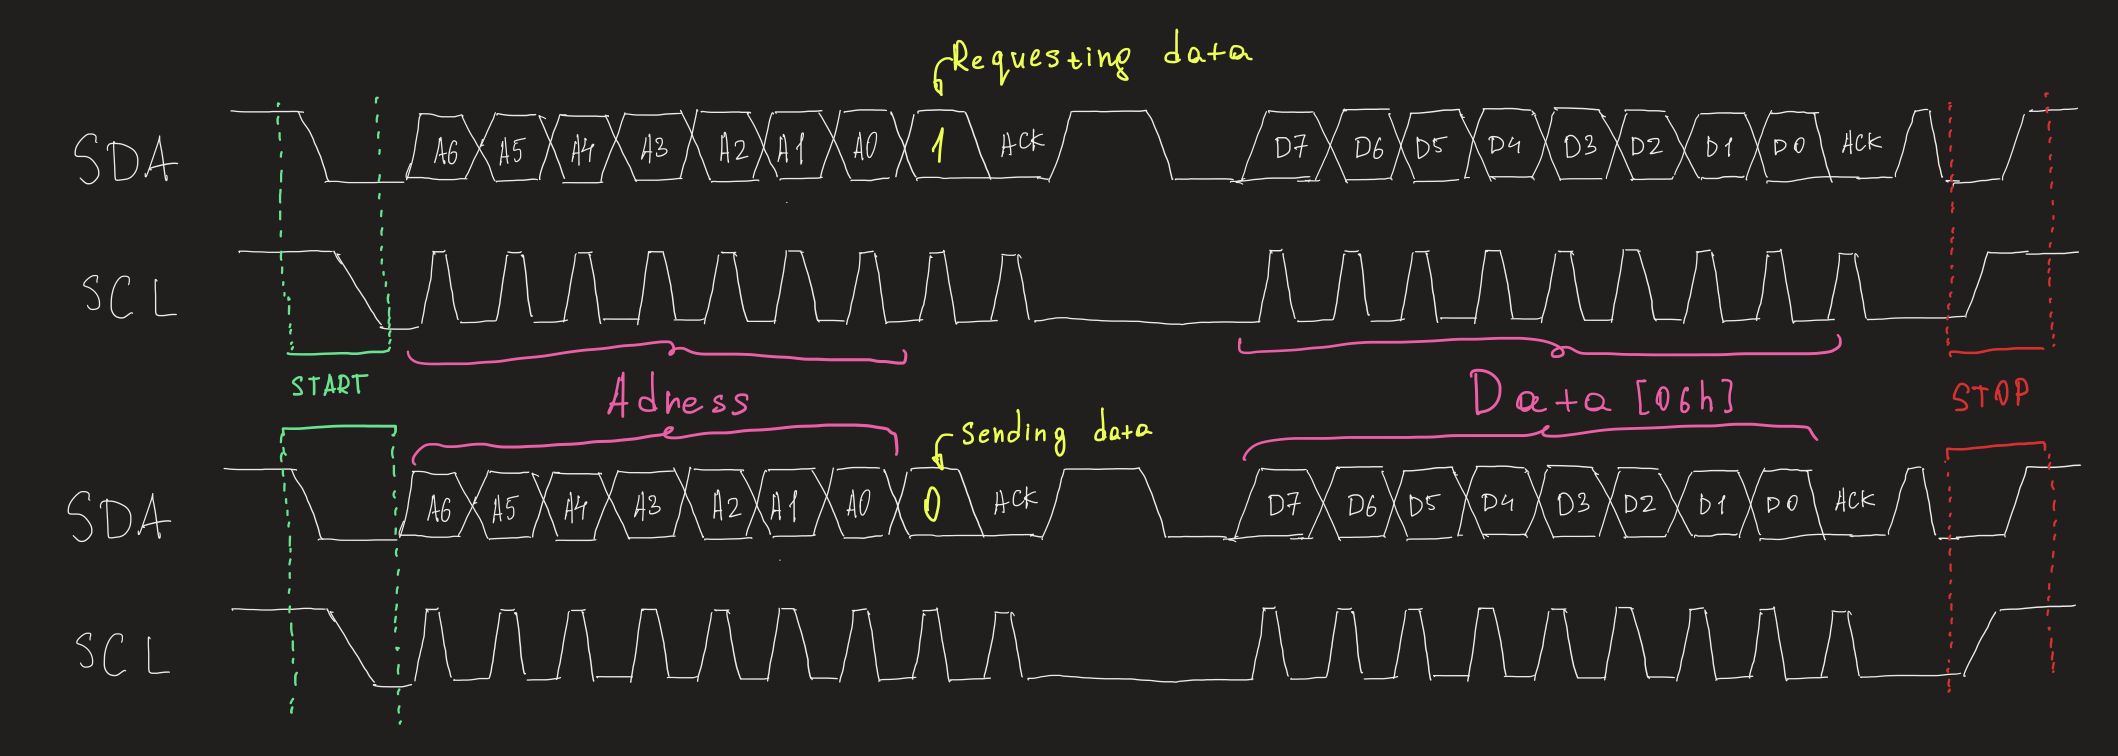 Requesting data
SDA A6 A5 A4 A3 A2 A1 A0 1 ACK D7 D6 D5 D4 D3 D2 D1 D0 ACK
SCL
START Adress Data [06h] STOP
Sending data
SDA A6 A5 A4 A3 A2 A1 A0 0 ACK D7 D6 D5 D4 D3 D2 D1 D0 ACK
SCL